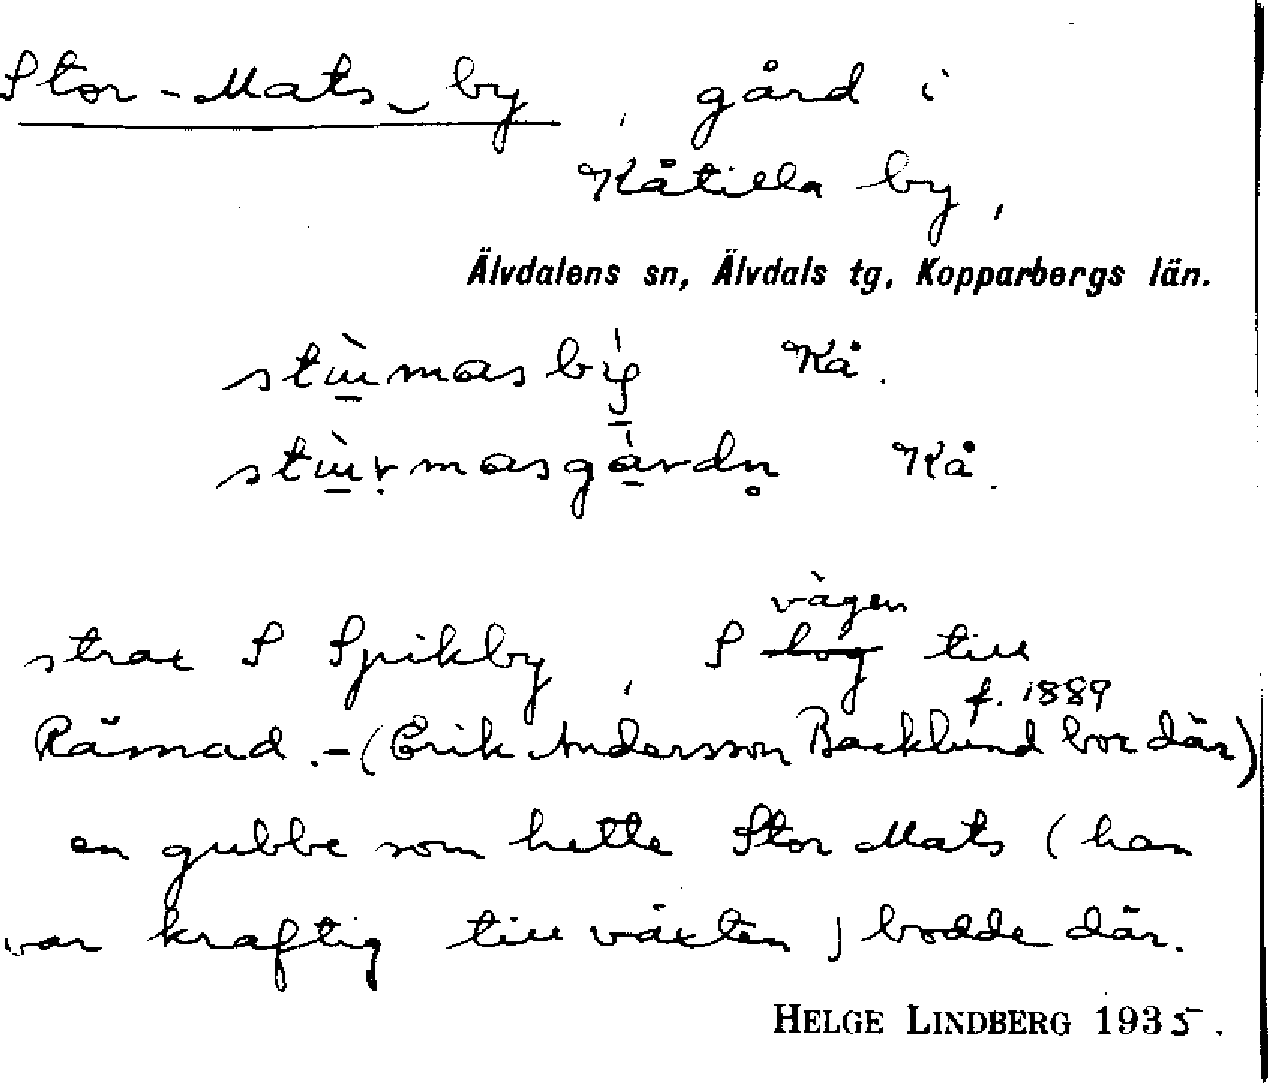 Stor-Mats-by, gård i
Kåtilla by,
Älvdalens sn, Älvdals tg, Kopparbergs län.
stùrmasby̍ Kå.
stùṛmasgàrdn̥ Kå.
vägen
strax S Spikby, S log till
f. 1889
Råmad. - (Erik Andersson Backlund bor där)
en gubbe som hette Stor Mats (han
var kraftig till växten) bodde där.
HELGE LINDBERG 1935.